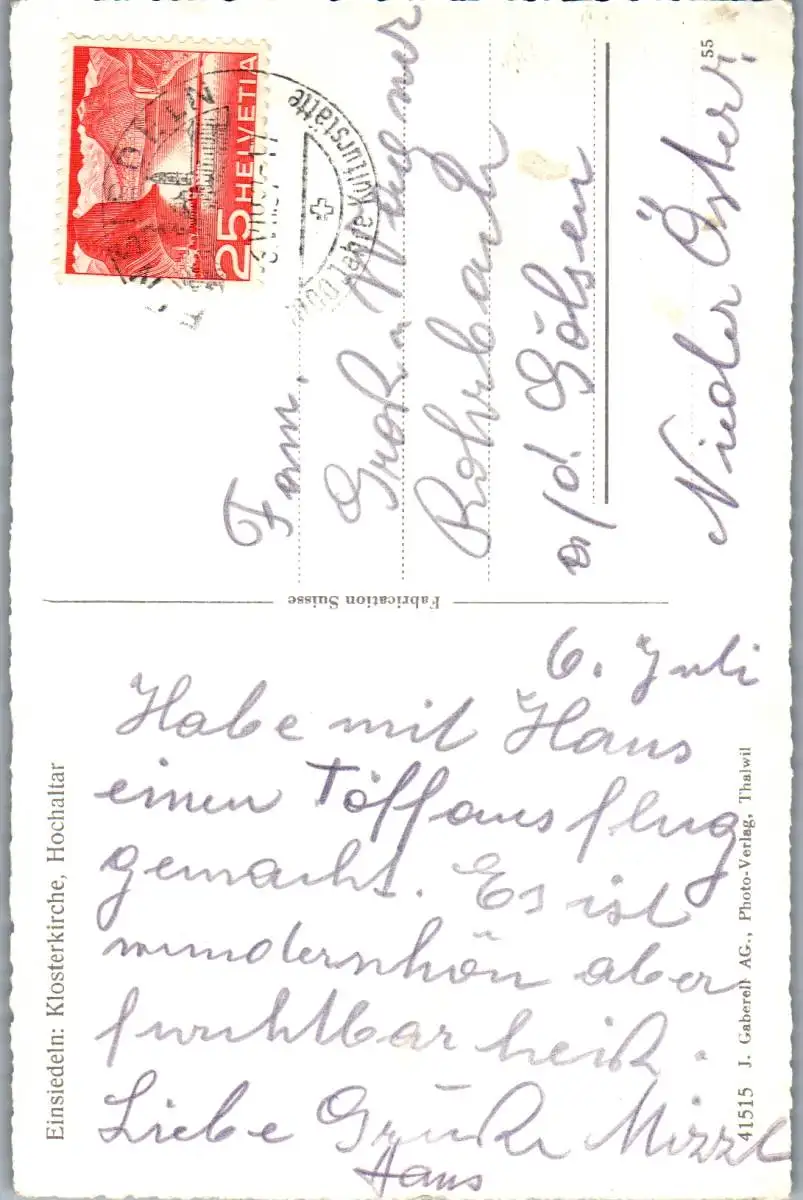 Einsiedeln: Klosterkirche, Hochaltar
6. Juli
Habe mit Hans
einen Töffausflug
gemacht. Es ist
wunderschön aber
furchtbar heiß.
Liebe Grüße Mizzl
Hans
41515 J. Gaberell AG., Photo-Verlag, Thalwil
Fabrication Suisse
25 HELVETIA
1000 Jahre Kulturstätte
Fam.
Rohrbach
a/d. Gölsen
Nieder Öster.
55